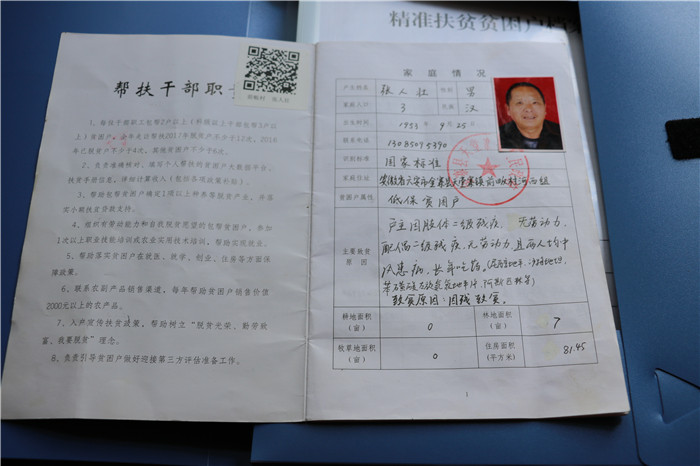 精准扶贫贫困户
帮扶干部职
1、每位干部职工包帮2户以上(科级以上干部包帮3户以
上)贫困户。全年走访帮扶2017年脱贫户不少于12次,2018
年已脱贫户不少于4次,其他贫困户不少于6次。
2、负责准确核对、填写个人帮扶的贫困户大数据平台、
扶贫手册信息,详细计算收入(包括各项政策补助)。
3、帮助包帮贫困户确定1项以上种养类脱贫产业,并落
实小额扶贫贷款支持。
4、组织有劳动能力和自我脱贫愿望的包帮贫困户,参加
1次以上职业技能培训或农业实用技术培训,帮助实现就业。
5、帮助落实贫困户在就医、就学、创业、住房等方面保
障政策。
6、联系农副产品销售渠道,每年帮助贫困户销售价值
2000元以上的农产品。
7、入户宣传扶贫政策,帮助树立“脱贫光荣、勤劳致
富、我要脱贫”理念。
8、负责引导贫困户做好迎接第三方评估准备工作。
家庭情况
户主姓名 张人壮 性别 男
家庭人口 3 民族 汉
出生时间 1953年9月25日
联系电话
识别标准 国家标准
家庭住址 安徽省六安市金寨县
贫困户属性 低保贫困户
主要致贫
原因
户主因肢体二级残疾,无劳动力,
配偶二级残疾,无劳动力且两人均有
长年吃药。
致贫原因:因残致贫。
耕地面积
(亩) 0 林地面积
(亩) 7
牧草地面积
(亩) 0 住房面积
(平方米) 81.45
1